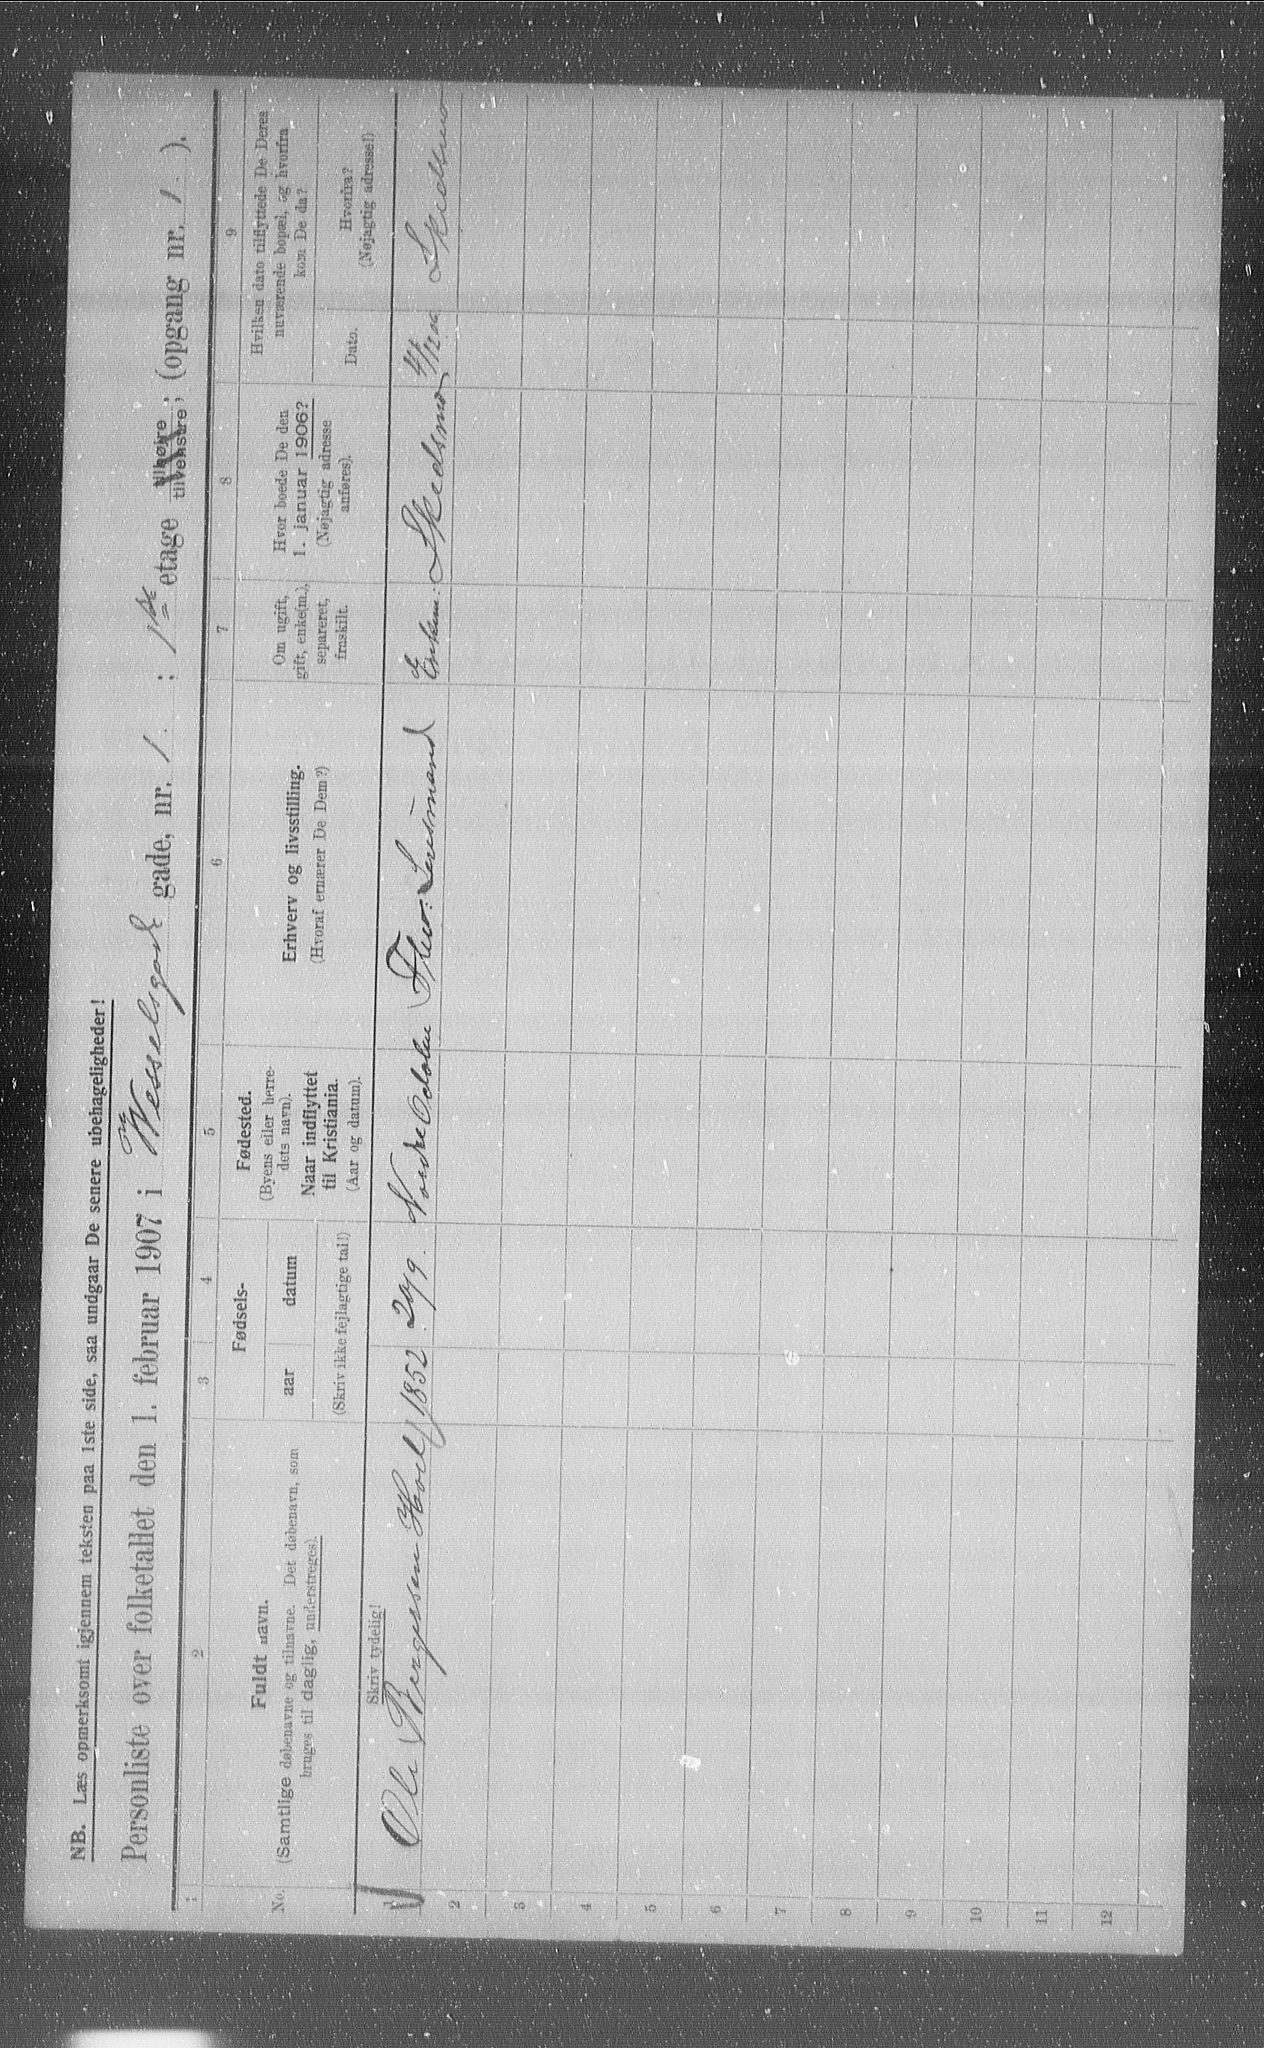 NB. Læs opmerksomt igjennem teksten paa 1ste side, saa undgaar De senere ubehageligheder!
Personliste over folketallet den 1. februar 1907 i Wesselsgade gade, nr. 1. : 1ste etage til høire tilvenstre, ; (opgang nr. 1. ).
1 2 3 4 5 6 7 8 9
No.
Fuldt navn.
(Samtlige døbenavne og tilnavne. Det døbenavn, som
bruges til daglig, understreges).
Skriv tydelig!
Fødsels-
aar datum
(Skriv ikke fejlagtige tal!)
Fødested.
(Byens eiler herre-
dets navn).
Naar indflyttet
til Kristiania.
(Aar og datum).
Erhverv og livsstilling.
(Hvoraf ernærer De Dem?)
Om ugift,
gift, enke(m.),
separeret,
fraskilt.
Hvor boede De den
1. januar 1906?
(Nøjagtig adresse
anføres).
Hvilken dato tilflyttede De Deres
nuværende bopæl, og hvorfra
kom De da?
Dato.
Hvorfra?
(Nøjagtig adresse!)
1 Ole Bergersen Hoel 1852. 20/9. Nordre Odalen Lensmand Enkem. Skedsmo 4/12 06 Skedsmo
2
3
4
5
6
7
8
9
10
11
12